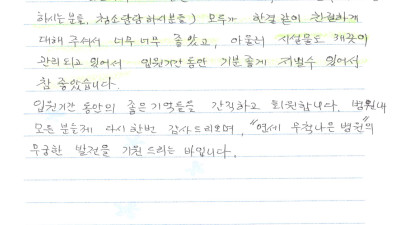 하시는분들, 청소담당하시분들) 모두가 한결같이 친절하게
대해 주셔서 너무너무 좋았고, 아울러 시설물도 깨끗이
관리되고 있어서 입원기간 동안 기분좋게 지낼수 있어서
참 좋았습니다.
입원기간 동안의 좋은기억들을 간직하고 퇴원합니다. 병원내
모든 분들께 다시한번 감사드리오며, "연세 우척나은 병원"의
무궁한 발전을 기원 드리는 바입니다.